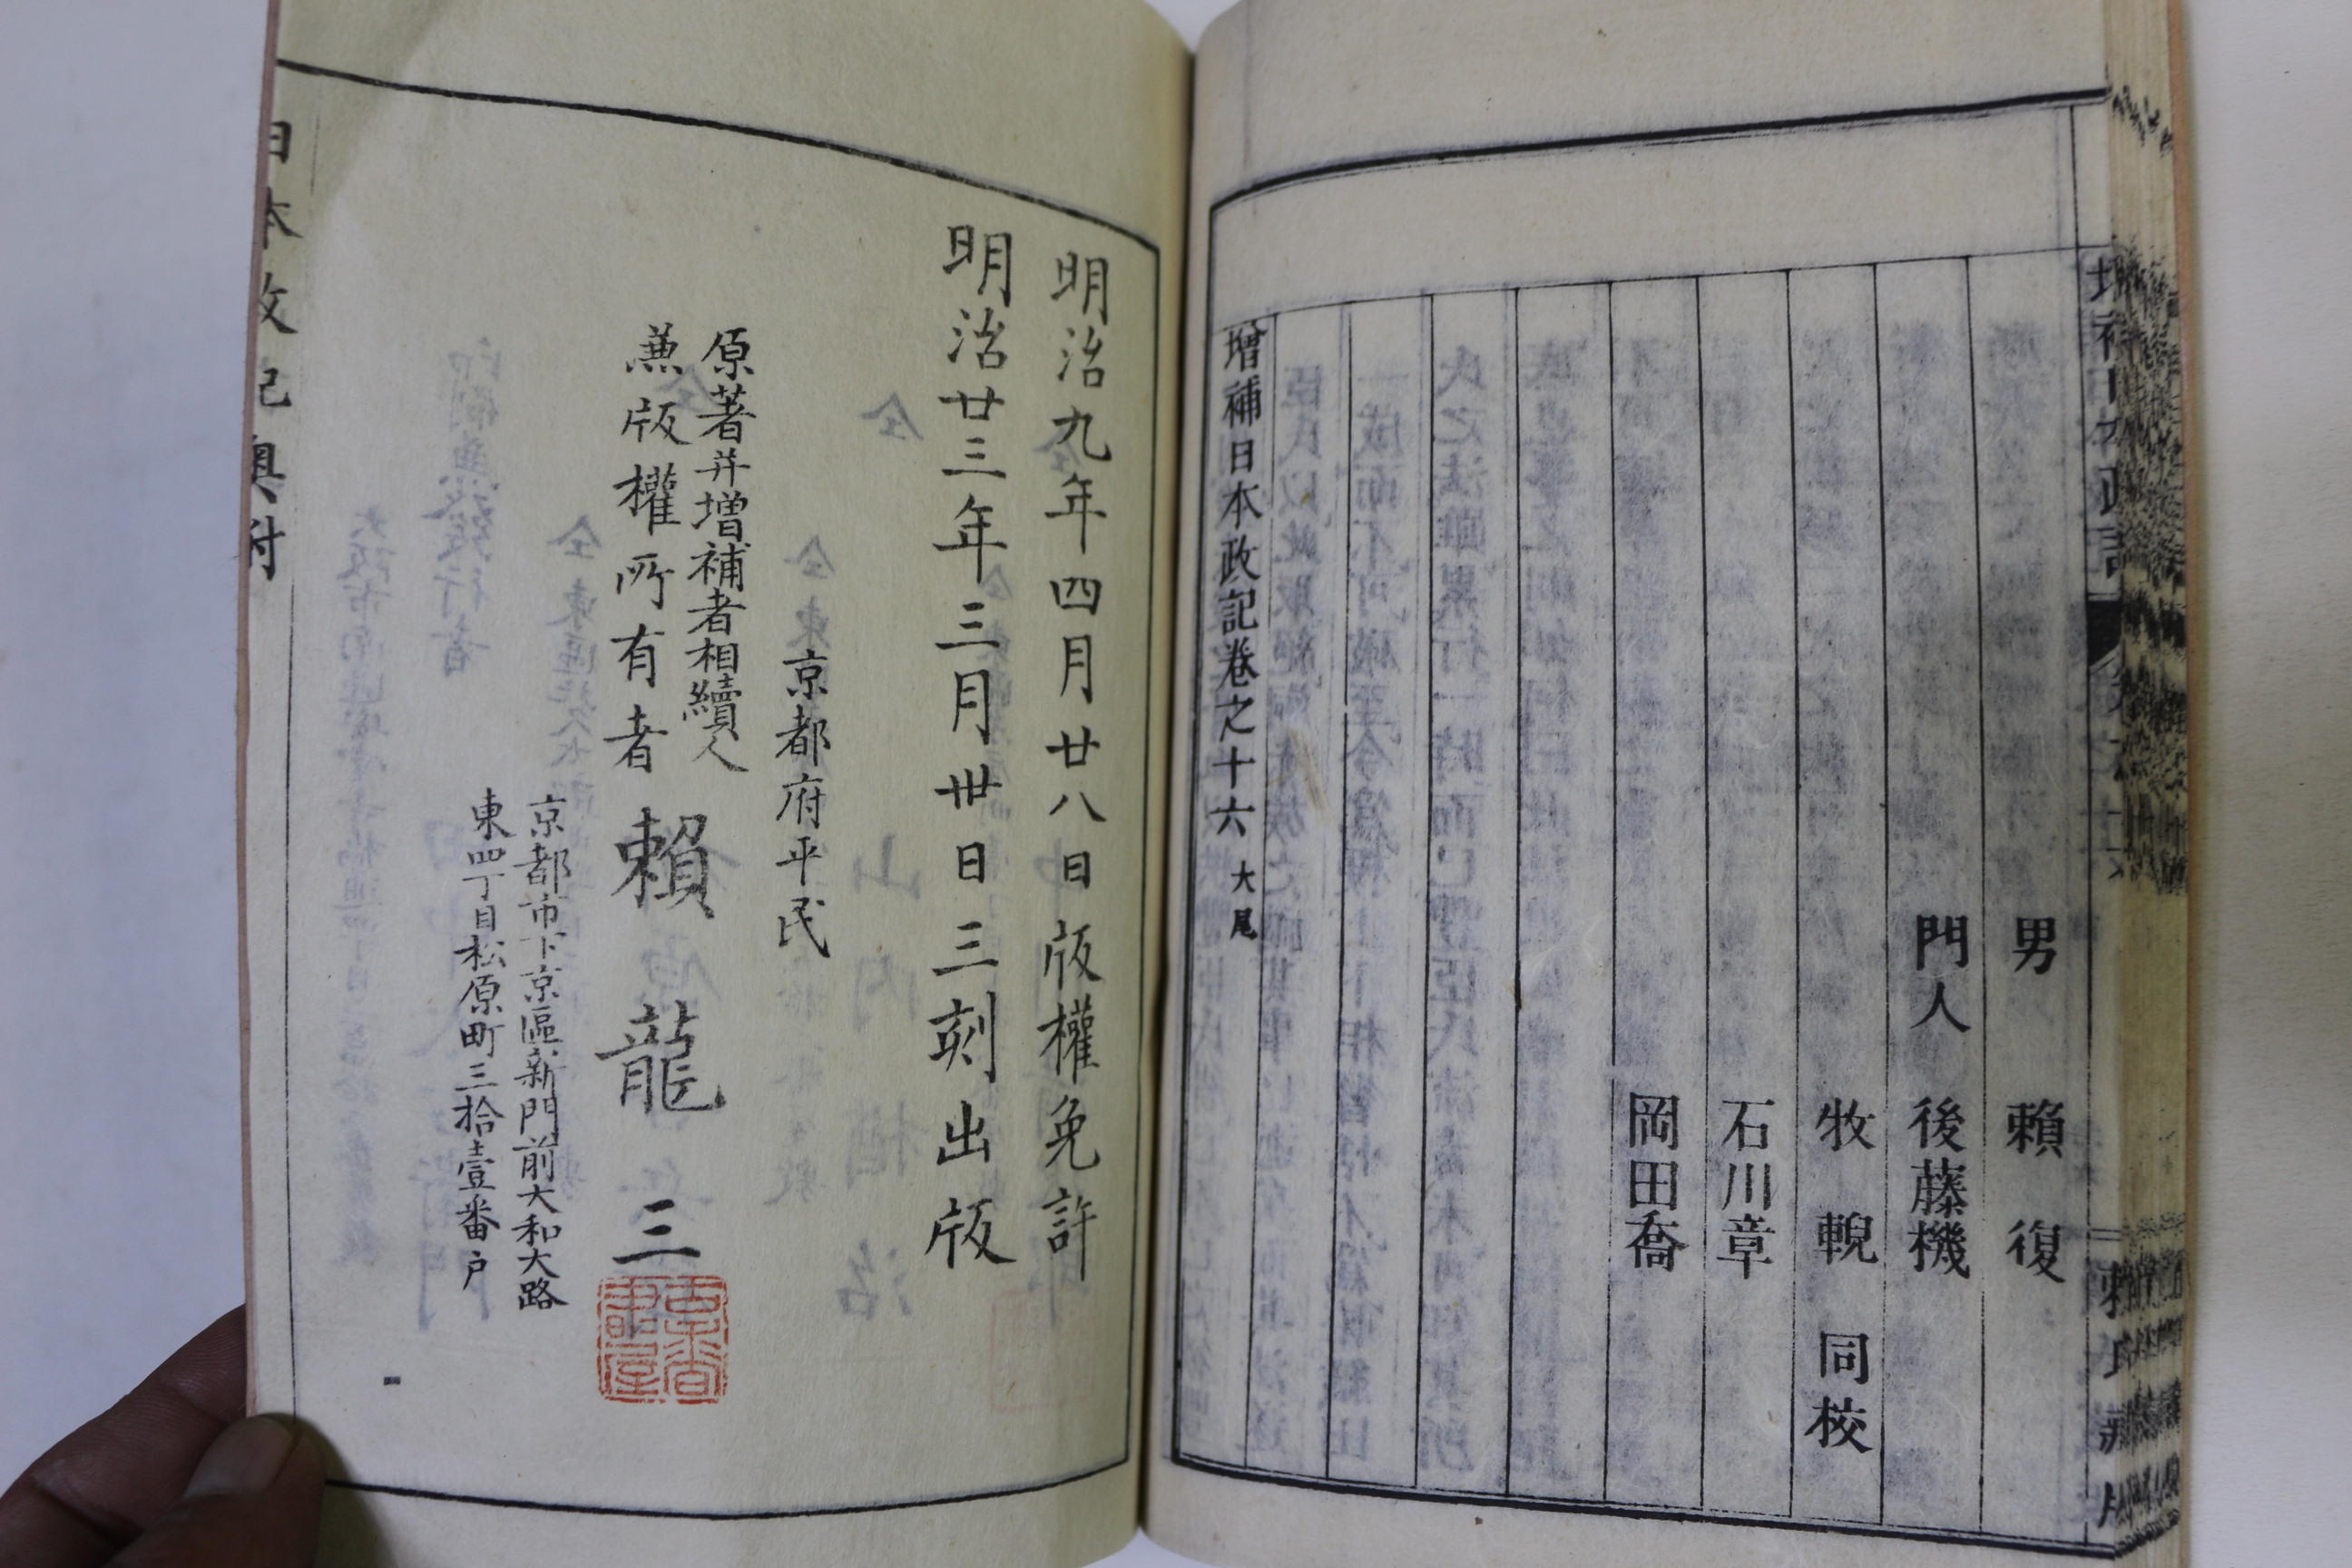 男　賴　復
門人　後藤機
牧　輗　同校
石川章
岡田喬
增補日本政記卷之十六　大尾
明治九年四月廿八日版權免許
明治廿三年三月卅日三刻出版
京都府平民
原著并增補者相續人
兼版權所有者
賴龍三
京都市下京區新門前大和大路
東四丁目松原町三拾壹番戶
日本政記奥附